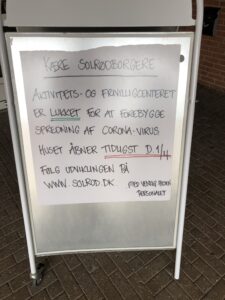 KÆRE SOLRØDBORGERE
AKTIVITETS- OG FRIVILLIGCENTERET
ER LUKKET FOR AT FOREBYGGE
SPREDNING AF CORONA-VIRUS
HUSET ÅBNER TIDLIGST D. 1/4
FØLG UDVIKLINGEN PÅ
WWW.SOLROD.DK
MED VENLIG HILSEN
PERSONALET